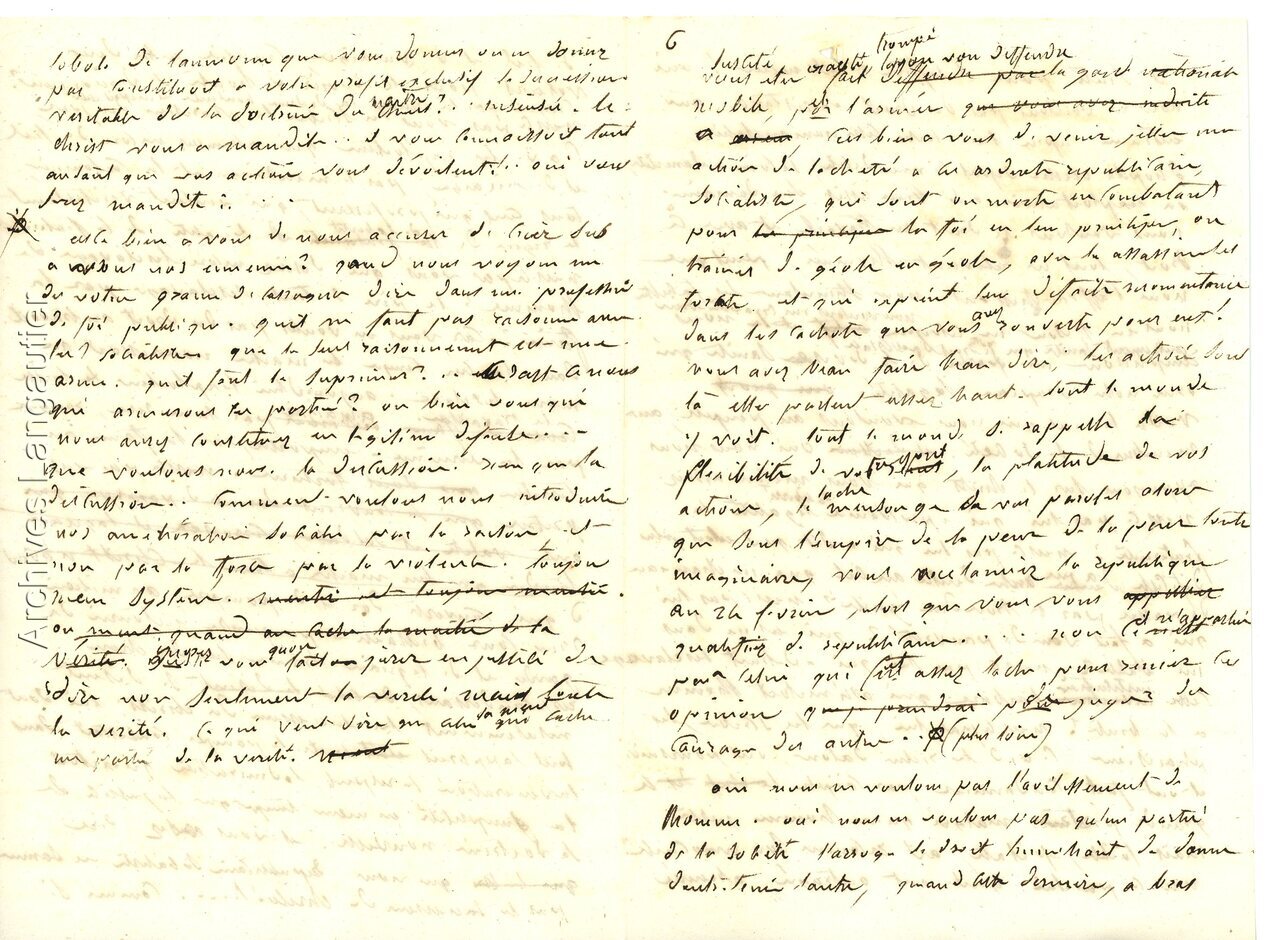 lobole de l'aumone que vous donnez ou ne donnez
pas constituoit a votre profit exclusif la succession
veritable de la doctrine du maitre Christ? .. insensés. le
christ vous a maudits... il vous connaissoit tout
autant que vos actions vous dévoilent!.. oui vous
serez maudits! . . .
est ce bien a vous de nous accuser de crier sus
a nous nos ennemis? quand nous voyons un
de votre dire dans une profession
de foi publique. qu'il ne faut pas raisonner avec
les socialistes que le seul raisonnement est une
arme. qu'il faut les suprimer? ... est ce a nous
qui armerons les partis? ou bien vous qui
nous aurez constituez en légitime défense....
que voulons nous. la discussion. rien que la
discussion. comment voulons nous introduire
nos amélioration sociales par la raison, et
non par la force par la violence. toujour
meme système. mentir et toujours mentir.
on ment quand on cache la moitié de la
vérité. vous quon fait jurer en justice de
dire non seulement la verité mais toute
la verité. ce qui veut dire que celui la ment qui cache
une partie de la verité. ment
6
trompé
vous etes fait deffendre par la garde nationale
mobile, par l'armée que vous avez induite
a erreur, cest bien a vous de venir jetter une
action de lacheté a ces ardents republicains,
socialistes, qui sont ou morts en combatant
pour les principes la foi en leur principes, ou
trainés de géole en géole, avec les assassins les
forçats. et qui expient leur défaite momentanée
dans les cachots que vous avez rouverts pour eux!
vous avez beau faire beau dire, les actions sont
là elles parlent assez haut. tout le monde
y voit. tout le monde se rappelle la
flexibilité de votre esprit, la platitude de vos
actions, le lache mensonge de vos paroles alors
que sous l'empire de la peur de la peur toute
imaginaire, vous acclamiez la republique
au 24 fevrier, alors que vous vous appelliez
qualifiez de republicains. . . . . non il n'appartient
pas a celui qui est assez lache pour renier ses
opinion que je prendrai pour juger du
courage des autres .. (plus loin)
oui nous ne voulons pas l'avilissement de
l'homme. oui nous ne voulons pas qu'une partie
de la société s'arroge le droit humiliant de donner
l'autre, quand cette derniere, a bras
Archives Langauffier